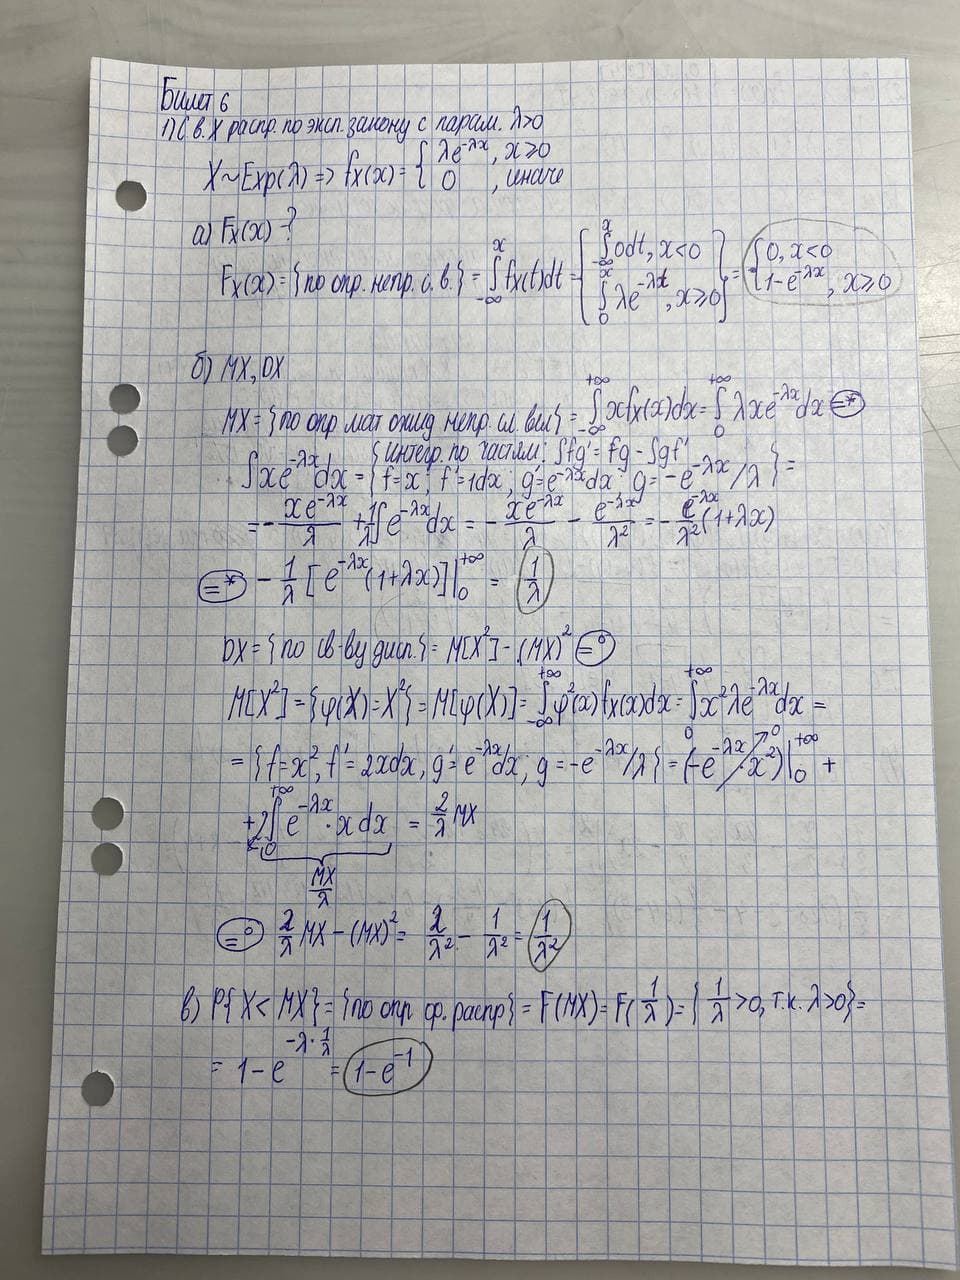 Билет 6
1) С.в. X распр. по эксп. закону с парам. λ>0
X~Exp(λ) => fx(x) = { λe^{-λx}, x≥0
0 , иначе
а) Fx(x) - ?
Fx(x) = {по опр. непр. с. в.} = ∫_{-∞}^{x} fx(t)dt = { ∫_{-∞}^{x} 0dt, x<0
∫_{0}^{x} λe^{-λt}, x≥0 } = { 0, x<0
1-e^{-λx}, x≥0
б) MX, DX
MX = {по опр мат ожид непр. сл. вел} = ∫_{-∞}^{+∞} xfx(x)dx = ∫_{0}^{+∞} λxe^{-λx}dx =*
∫xe^{-λx}dx = { интегр. по частям: ∫fg' = fg - ∫gf'
f=x; f'=1dx; g'=e^{-λx}dx g=-e^{-λx}/λ } =
= - xe^{-λx}/λ + 1/λ ∫e^{-λx}dx = - xe^{-λx}/λ - e^{-λx}/λ² = - e^{-λx}/λ² (1+λx)
=* - 1/λ [e^{-λx}(1+λx)]|_{0}^{+∞} = 1/λ
DX = {по св-ву дисп.} = M[X²] - (MX)² =°
M[X²] = {φ(X) = X²} = M[φ(X)] = ∫_{-∞}^{+∞} φ²(x)fx(x)dx = ∫_{0}^{+∞} x²λe^{-λx}dx =
= {f=x², f'=2xdx, g'=e^{-λx}dx; g=-e^{-λx}/λ} = (-e^{-λx}·x²)|_{0}^{+∞} → 0 +
+2∫_{0}^{+∞} e^{-λx}·xdx = 2/λ MX
MX/λ
=° 2/λ MX - (MX)² = 2/λ² - 1/λ² = 1/λ²
в) P{X < MX} = {по опр ф. распр} = F(MX) = F(1/λ) = { 1/λ >0, т.к. λ>0} =
= 1 - e^{-λ·1/λ} = 1-e^{-1}